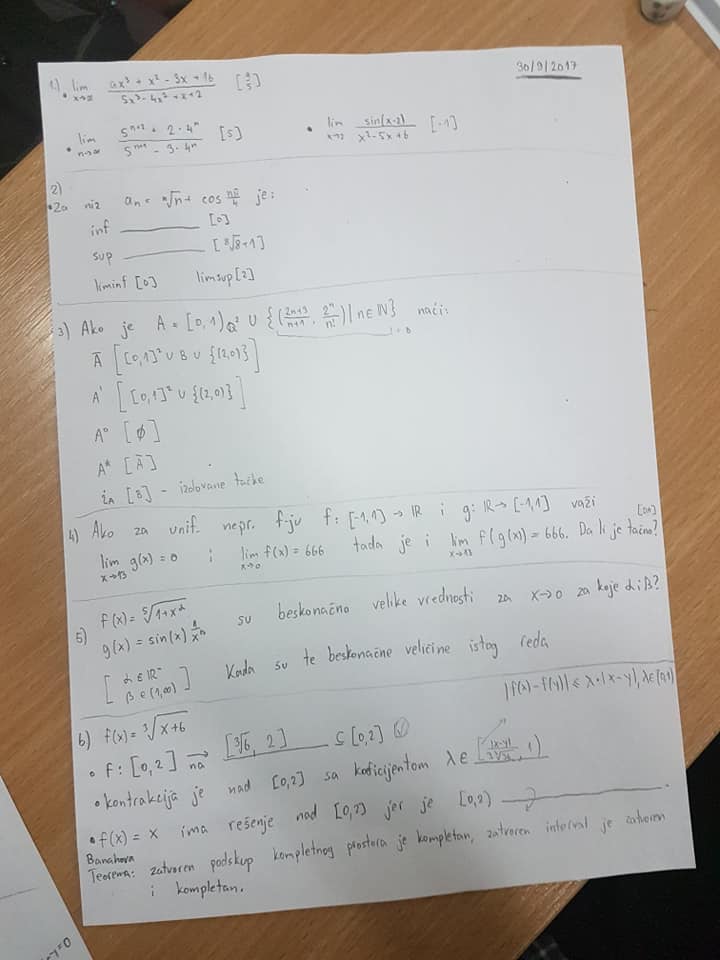 30/9/2017
1.) lim x→∞ (ax³ + x² - 3x + 16)/(5x³ - 4x² + x + 2) [a/5]
• lim n→∞ (5ⁿ⁺² + 2·4ⁿ)/(5ⁿ⁺¹ - 3·4ⁿ) [5] • lim x→2 sin(x-2)/(x²-5x+6) [-1]
2)
• Za niz aₙ = ⁿ√n + cos nπ/4 je:
inf ______ [0]
sup ______ [⁸√8+1]
liminf [0] limsup [2]
3) Ako je A = [0,1)_Q² ∪ {(2n+3/n+1, 2ⁿ/n!) | n∈ℕ} naći:
Ā [[0,1]² ∪ B ∪ {(2,0)}]
A' [[0,1]² ∪ {(2,0)}]
A° [∅]
A* [Ā]
i_A [B] - izolovane tačke
4) Ako za unif. nepr. f-ju f: [-1,1] → ℝ i g: ℝ → [-1,1] važi [DA]
lim x→13 g(x) = 0 i lim x→0 f(x) = 666 tada je i lim x→13 f(g(x)) = 666. Da li je tačno?
5) f(x) = ⁵√(1+x^α) su beskonačno velike vrednosti za x→0 za koje α i β?
g(x) = sin(x) 1/x^β
[α∈ℝ⁻ Kada su te beskonačne veličine istog reda
β∈(1,∞)]
|f(x)-f(y)| ≤ λ·|x-y|, λ∈[0,1)
6) f(x) = ³√(x+6)
• f: [0,2] →na [³√6, 2] ______ ⊆ [0,2]
• kontrakcija je nad [0,2] sa koficijentom λ∈
• f(x) = x ima rešenje nad [0,2] jer je [0,2] ______.
Banahova
Teorema: zatvoren podskup kompletnog prostora je kompletan, zatvoren interval je zatvoren
i kompletan.